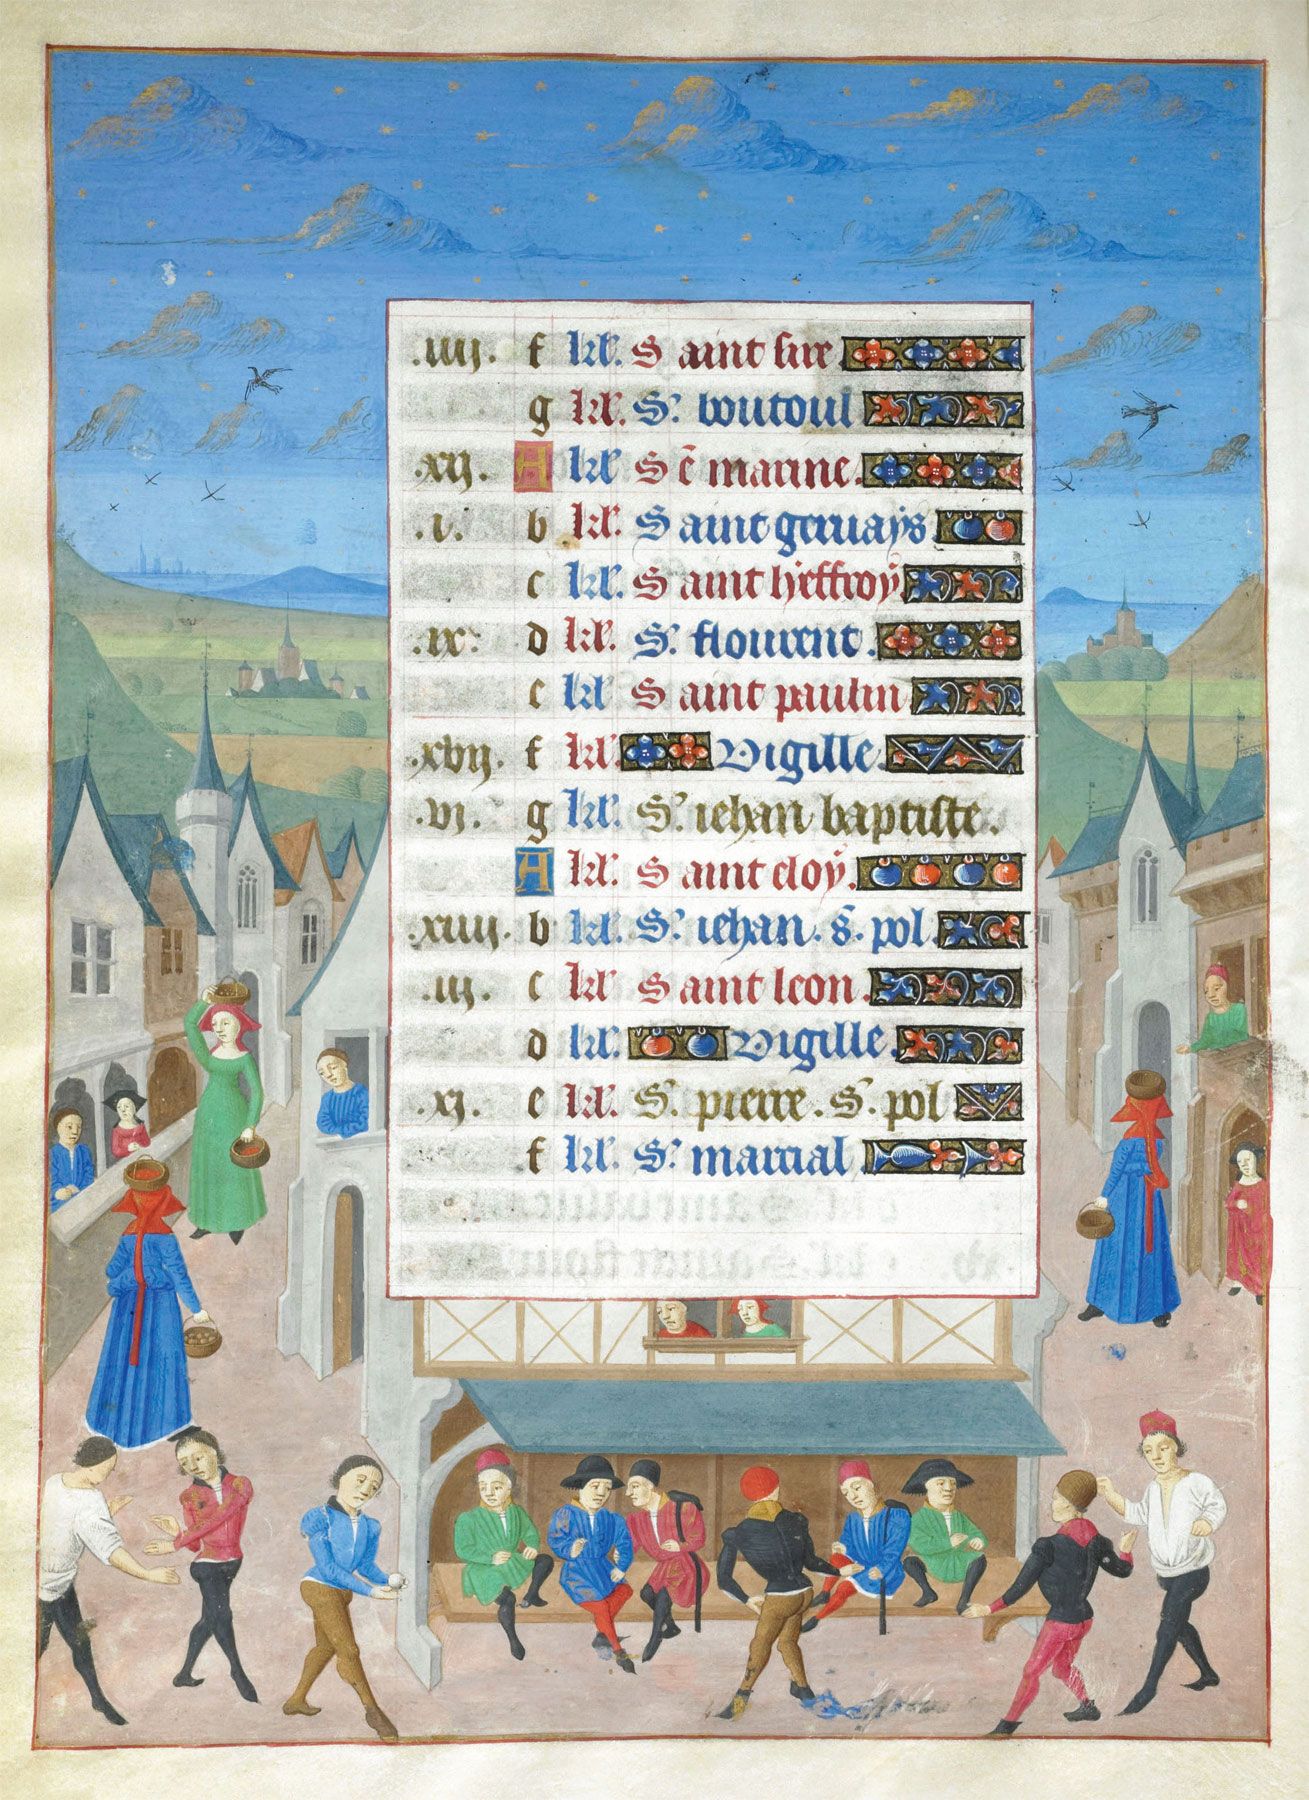 .iiij. f kl. Saint fire
g kl. S. boutoul
.xij. A kl Sē marine.
.v. b kl. Saint geruays
c kl. Saint heffroy
.ix. d kl. S. flourent.
e kl Saint paulin
.xvij. f kl. Vigille.
.vj. g kl. S. iehan baptiste.
A kl. Saint eloy.
.xiiij. b kl. S. iehan. s. pol.
.iij. c kl Saint leon.
d kl. Vigille.
.xj. e kl. S. pierre. S. pol
f kl. S. marcial